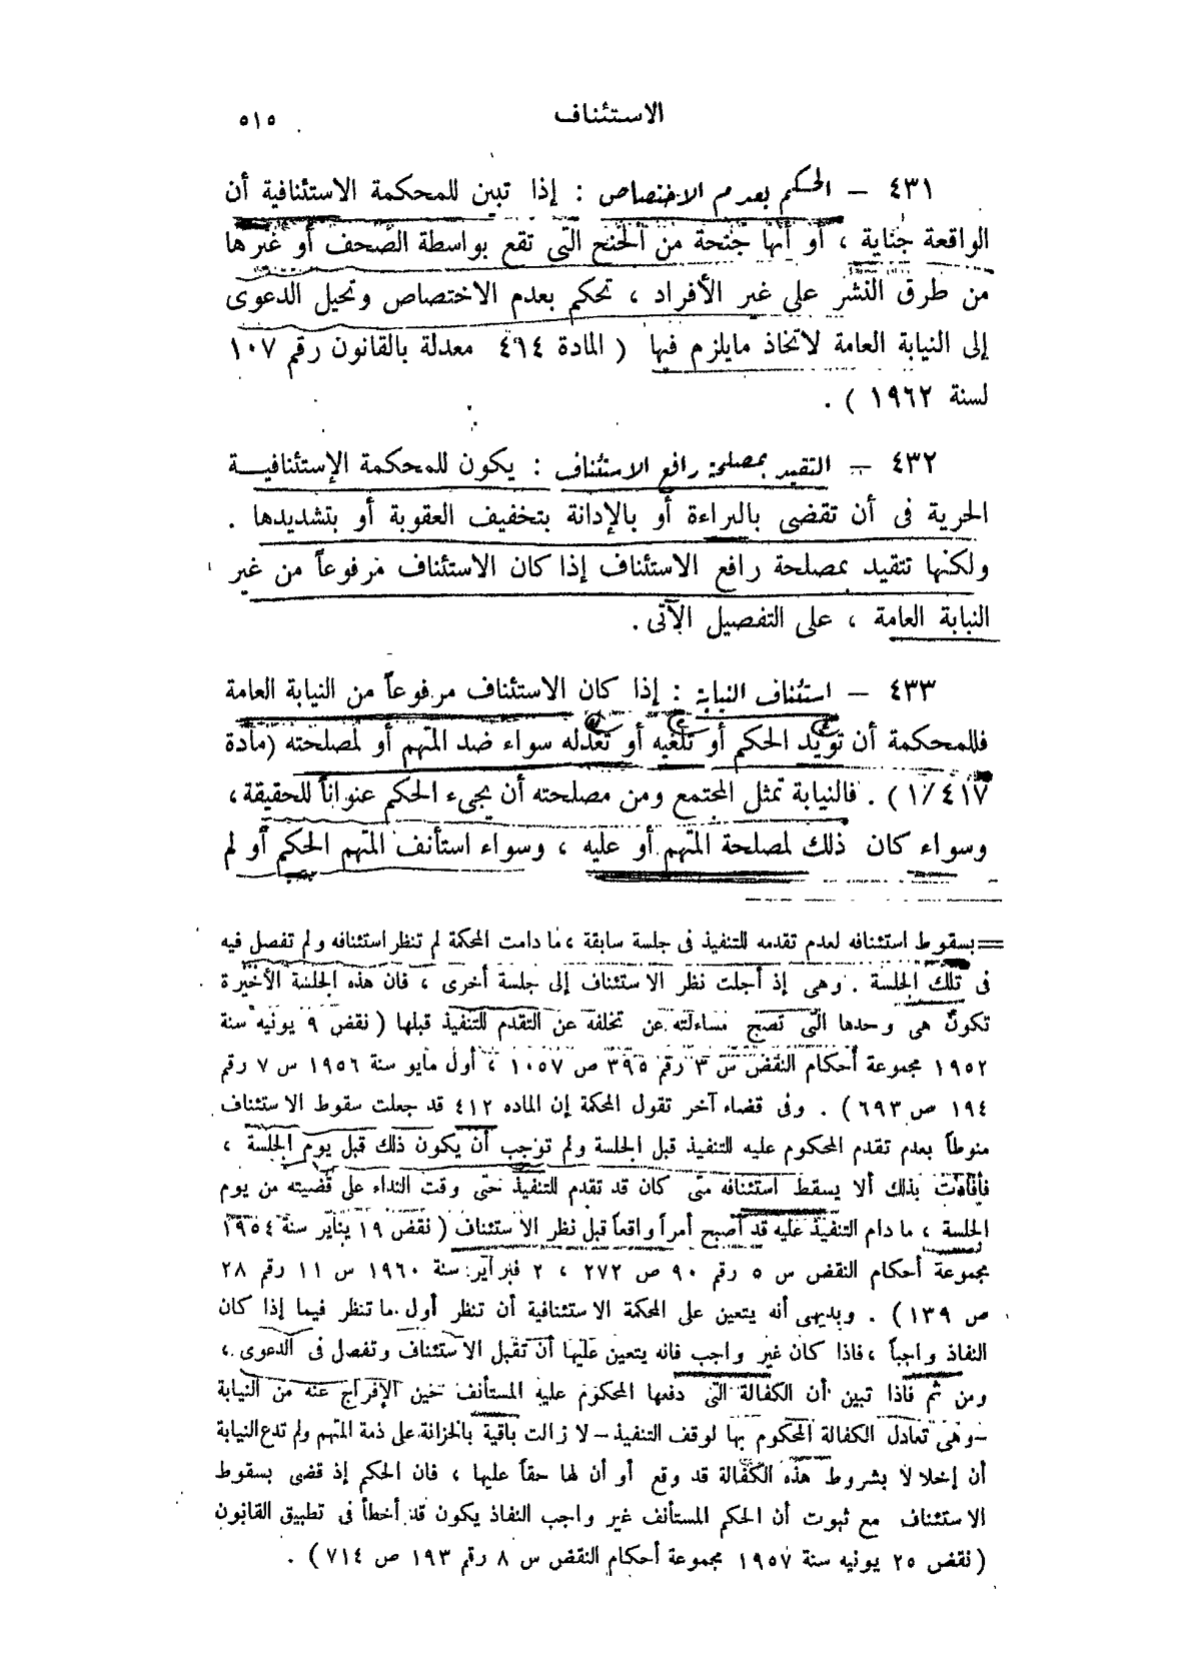 الاستئناف ٥١٥
٤٣١ – الحكم بعدم الاختصاص : إذا تبين للمحكمة الاستئنافية أن
الواقعة جناية ، أو أنها جنحة من الجنح التى تقع بواسطة الصحف أو غيرها
من طرق النشر على غير الأفراد ، تحكم بعدم الاختصاص وتحيل الدعوى
إلى النيابة العامة لاتخاذ مايلزم فيها ( المادة ٤١٤ معدلة بالقانون رقم ١٠٧
لسنة ١٩٦٢ ) .
٤٣٢ – التقيد بمصلحة رافع الاستئناف : يكون للمحكمة الإستئنافيــة
الحرية فى أن تقضى بالبراءة أو بالإدانة بتخفيف العقوبة أو بتشديدها .
ولكنها تتقيد بمصلحة رافع الاستئناف إذا كان الاستئناف مرفوعاً من غير
النيابة العامة ، على التفصيل الآتى .
٤٣٣ – استئناف النيابة : إذا كان الاستئناف مرفوعاً من النيابة العامة
فللمحكمة أن تؤيد الحكم أو تلغيه أو تعدله سواء ضد المتهم أو لمصلحته (مادة
١/٤١٧) . فالنيابة تمثل المجتمع ومن مصلحته أن يجىء الحكم عنواناً للحقيقة ،
وسواء كان ذلك لمصلحة المتهم أو عليه ، وسواء استأنف المتهم الحكم أو لم
=بسقوط استئنافه لعدم تقدمه للتنفيذ فى جلسة سابقة ، ما دامت المحكمة لم تنظر استئنافه ولم تفصل فيه
فى تلك الجلسة . وهى إذ أجلت نظر الاستئناف إلى جلسة أخرى ، فان هذه الجلسة الأخيرة
تكون هى وحدها التى تصح مساءلته عن تخلفه عن التقدم للتنفيذ قبلها ( نقض ٩ يونيه سنة
١٩٥٢ مجموعة أحكام النقض س ٣ رقم ٣٩٥ ص ١٠٥٧ ، أول مايو سنة ١٩٥٦ س ٧ رقم
١٩٤ ص ٦٩٣) . وفى قضاء آخر تقول المحكمة إن الماده ٤١٢ قد جعلت سقوط الاستئناف
منوطاً بعدم تقدم المحكوم عليه للتنفيذ قبل الجلسة ولم توجب أن يكون ذلك قبل يوم الجلسة ،
فأفادت بذلك ألا يسقط استئنافه متى كان قد تقدم للتنفيذ حتى وقت النداء على قضيته من يوم
الجلسة ، ما دام التنفيذ عليه قد أصبح أمراً واقعاً قبل نظر الاستئناف ( نقض ١٩ يناير سنة ١٩٥٤
مجموعة أحكام النقض س ٥ رقم ٩٠ ص ٢٧٢ ، ٢ فبراير سنة ١٩٦٠ س ١١ رقم ٢٨
ص ١٣٩) . وبديهى أنه يتعين على المحكمة الاستئنافية أن تنظر أول ما تنظر فيما إذا كان
النفاذ واجباً ، فاذا كان غير واجب فانه يتعين عليها أن تقبل الاستئناف وتفصل فى الدعوى ،
ومن ثم فاذا تبين أن الكفالة التى دفعها المحكوم عليه المستأنف حين الإفراج عنه من النيابة
–وهى تعادل الكفالة المحكوم بها لوقف التنفيذ– لا زالت باقية بالخزانة على ذمة المتهم ولم تدع النيابة
أن إخلالا بشروط هذه الكفالة قد وقع أو أن لها حقاً عليها ، فان الحكم إذ قضى بسقوط
الاستئناف مع ثبوت أن الحكم المستأنف غير واجب النفاذ يكون قد أخطأ فى تطبيق القانون
( نقض ٢٥ يونيه سنة ١٩٥٧ مجموعة أحكام النقض س ٨ رقم ١٩٣ ص ٧١٤) .